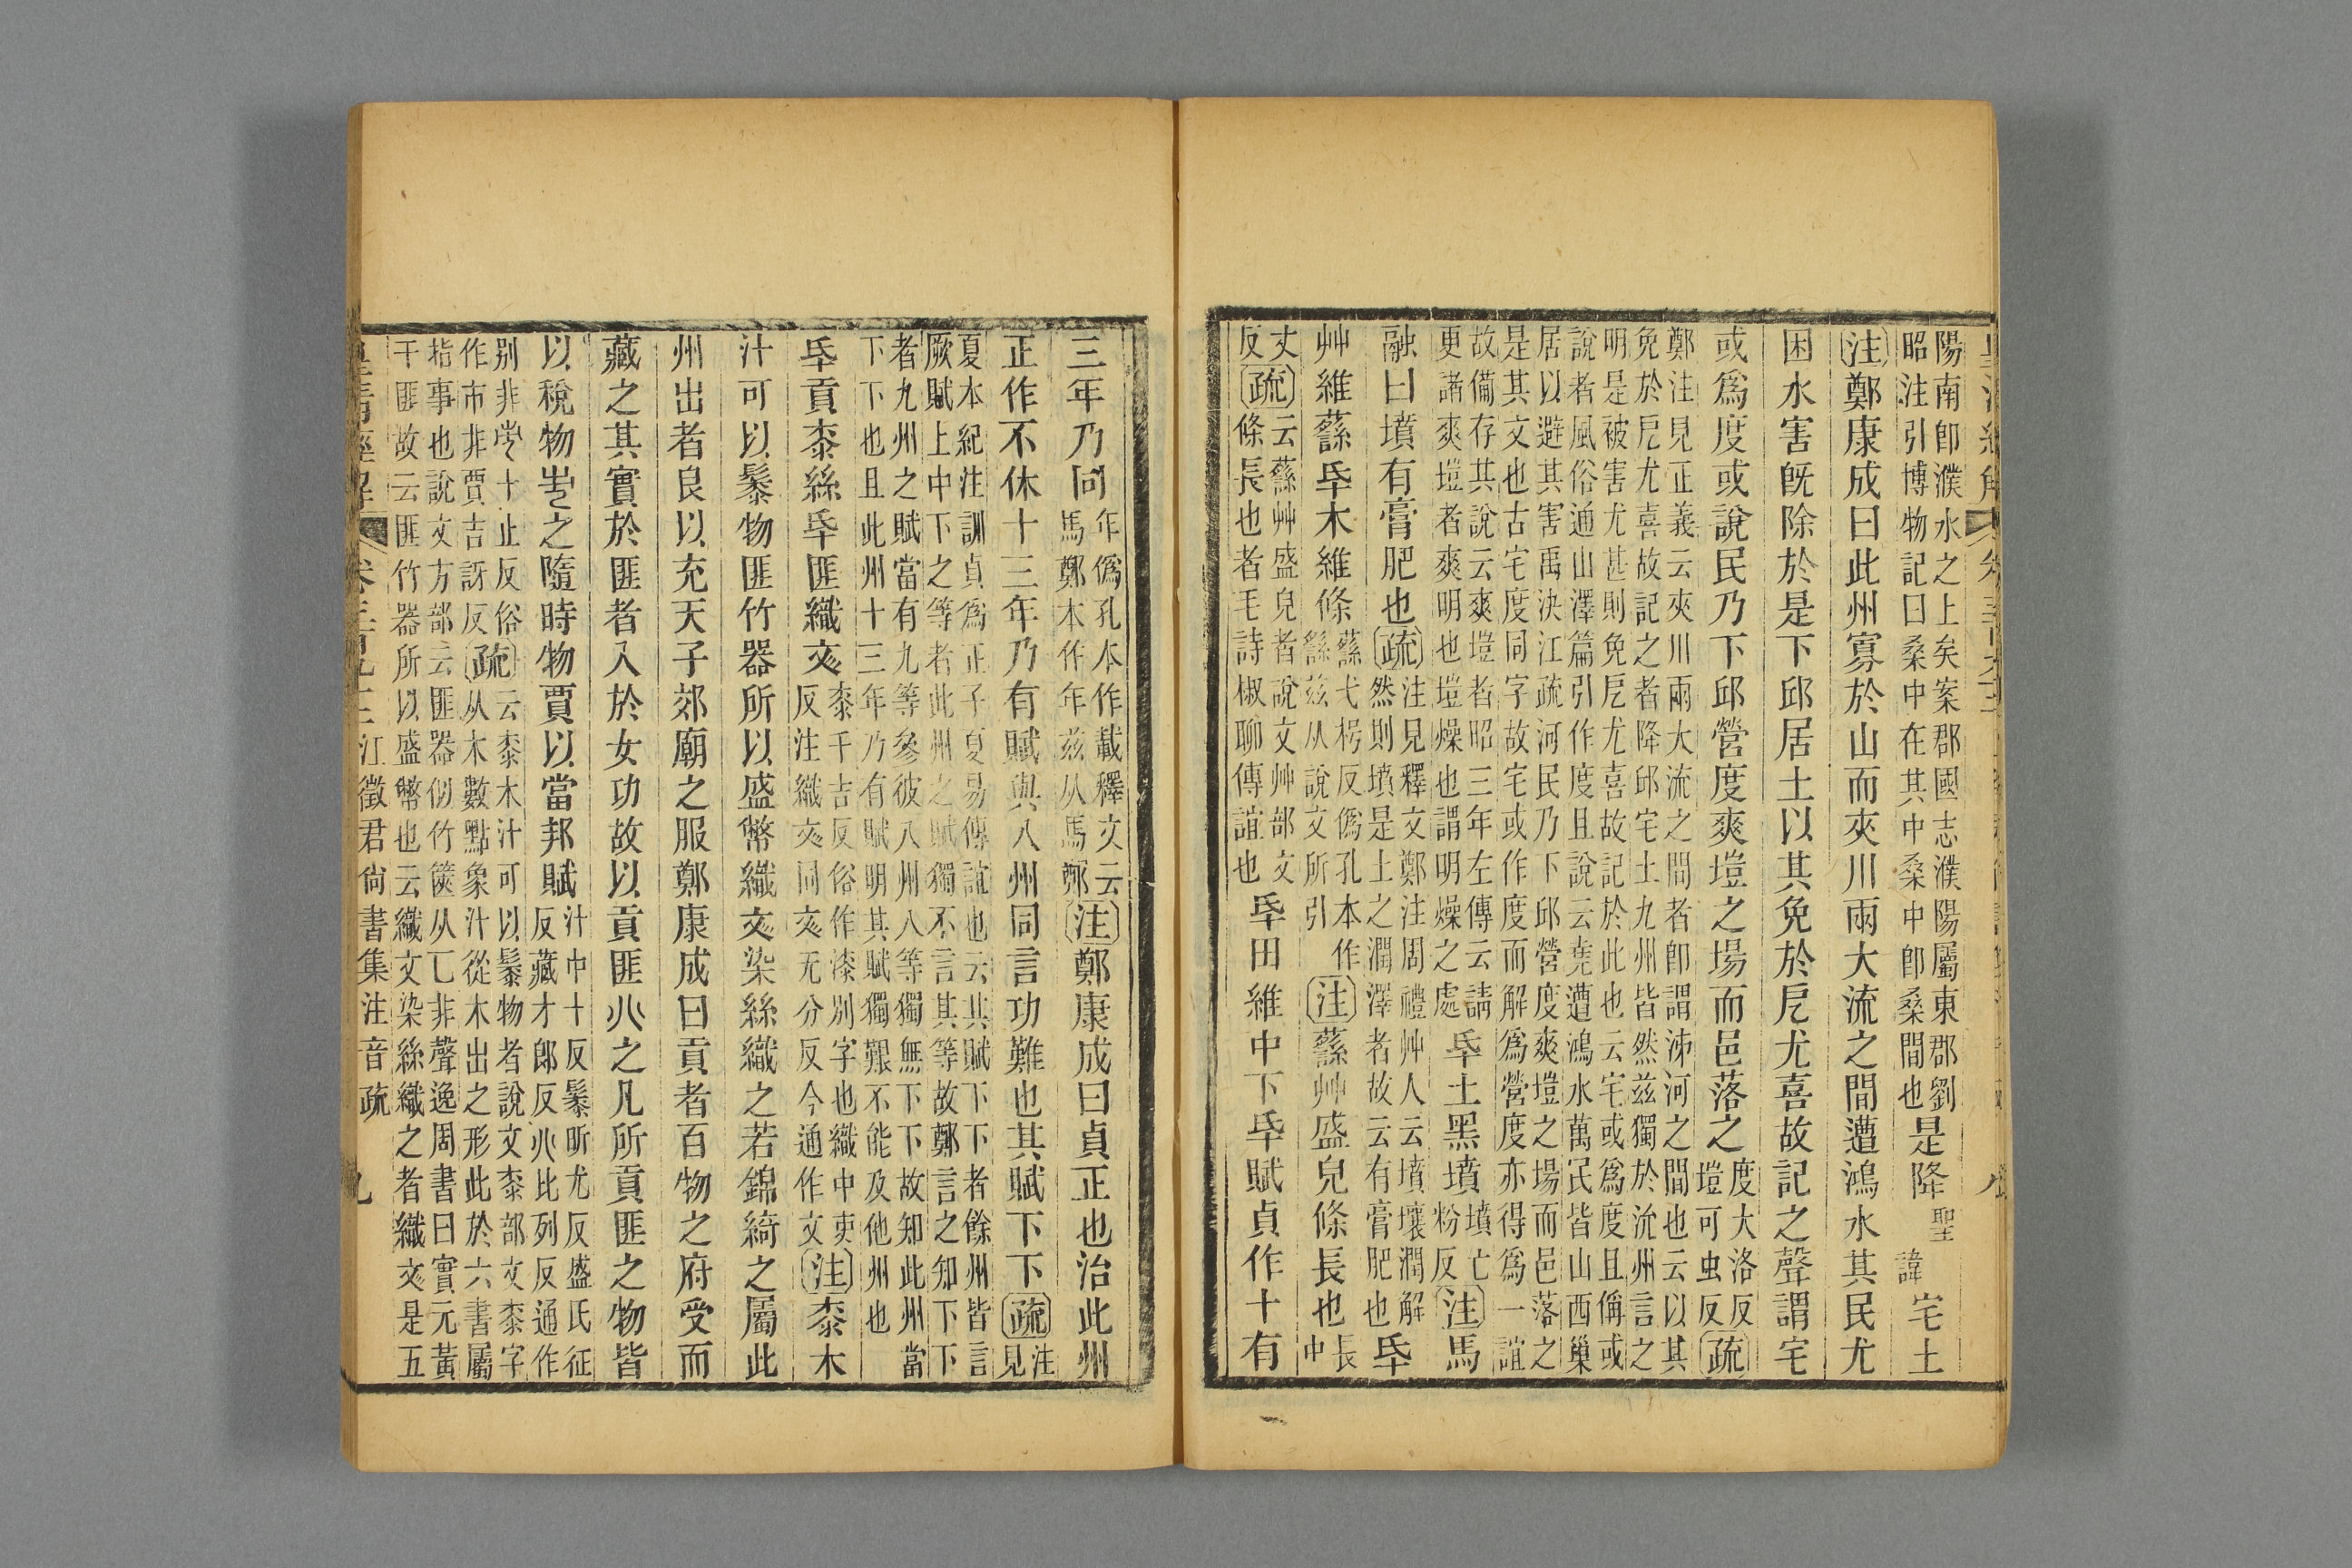 陽南卽濮水之上矣案郡國志濮陽屬東郡劉
昭注引博物記曰桑中在其中桑中卽桑間也是降聖諱宅土
注鄭康成曰此州寡於山而夾川兩大流之間遭鴻水其民尤
困水害旣除於是下邱居土以其免於戹尤喜故記之聲謂宅
或爲度或說民乃下邱營度爽塏之場而邑落之度大洛反塏可虫反疏
鄭注見正義云夾川兩大流之間者卽謂泲河之間也云以其
免於戹尤喜故記之者降邱宅土九州皆然茲獨於沇州言之
明是被害尤甚則免戹尤喜故記於此也云宅或爲度且偁或
說者風俗通山澤篇引作度且說云堯遭鴻水萬民皆山西巢
居以避其害禹決江疏河民乃下邱營度爽塏之場而邑落之
是其文也古宅度同字故宅或作度而解爲營度亦得爲一誼
故備存其說云爽塏者昭三年左傳云請
更諸爽塏者爽明也塏燥也謂明燥之處氒土黑墳墳亡粉反注馬
融曰墳有膏肥也疏注見釋文鄭注周禮艸人云墳壤潤解
然則墳是土之潤澤者故云有膏肥也氒
艸維蘨氒木維條蘨弋栲反僞孔本作
繇茲从說文所引注蘨艸盛皃條長也長中
丈反疏云蘨艸盛皃者說文艸部文
條長也者毛詩椒聊傳誼也氒田維中下氒賦貞作十有
三年乃同年僞孔本作載釋文云
馬鄭本作年茲从馬鄭注鄭康成曰貞正也治此州
正作不休十三年乃有賦與八州同言功難也其賦下下疏注見
夏本紀注訓貞爲正子夏易傳誼也云其賦下下者餘州皆言
厥賦上中下之等者此州之賦獨不言其等故鄭言之知下下
者九州之賦當有九等參彼八州八等獨無下下故知此州當
下下也且此州十三年乃有賦明其賦獨艱不能及他州也
氒貢桼絲氒匪織彣桼千吉反俗作漆別字也織中吏
反注織彣同彣无分反今通作文注桼木
汁可以髤物匪竹器所以盛幣織彣染絲織之若錦綺之屬此
州出者良以充天子郊廟之服鄭康成曰貢者百物之府受而
藏之其實於匪者入於女功故以貢匪𠔁之凡所貢匪之物皆
以稅物𡴀之隨時物賈以當邦賦汁中十反髤昕尤反盛氏征
反藏才郎反𠔁比列反通作
別非𡴀十止反俗作市非賈吉訝反疏云桼木汁可以髤物者說文桼部文桼字
从木數點象汁從木出之形此於六書屬
指事也說文方部云匪器似竹篋从匸非聲逸周書曰實元黃
于匪故云匪竹器所以盛幣也云織文染絲織之者織彣是五
皇清經解 卷三百九十三 江徵君尙書集注音疏 九